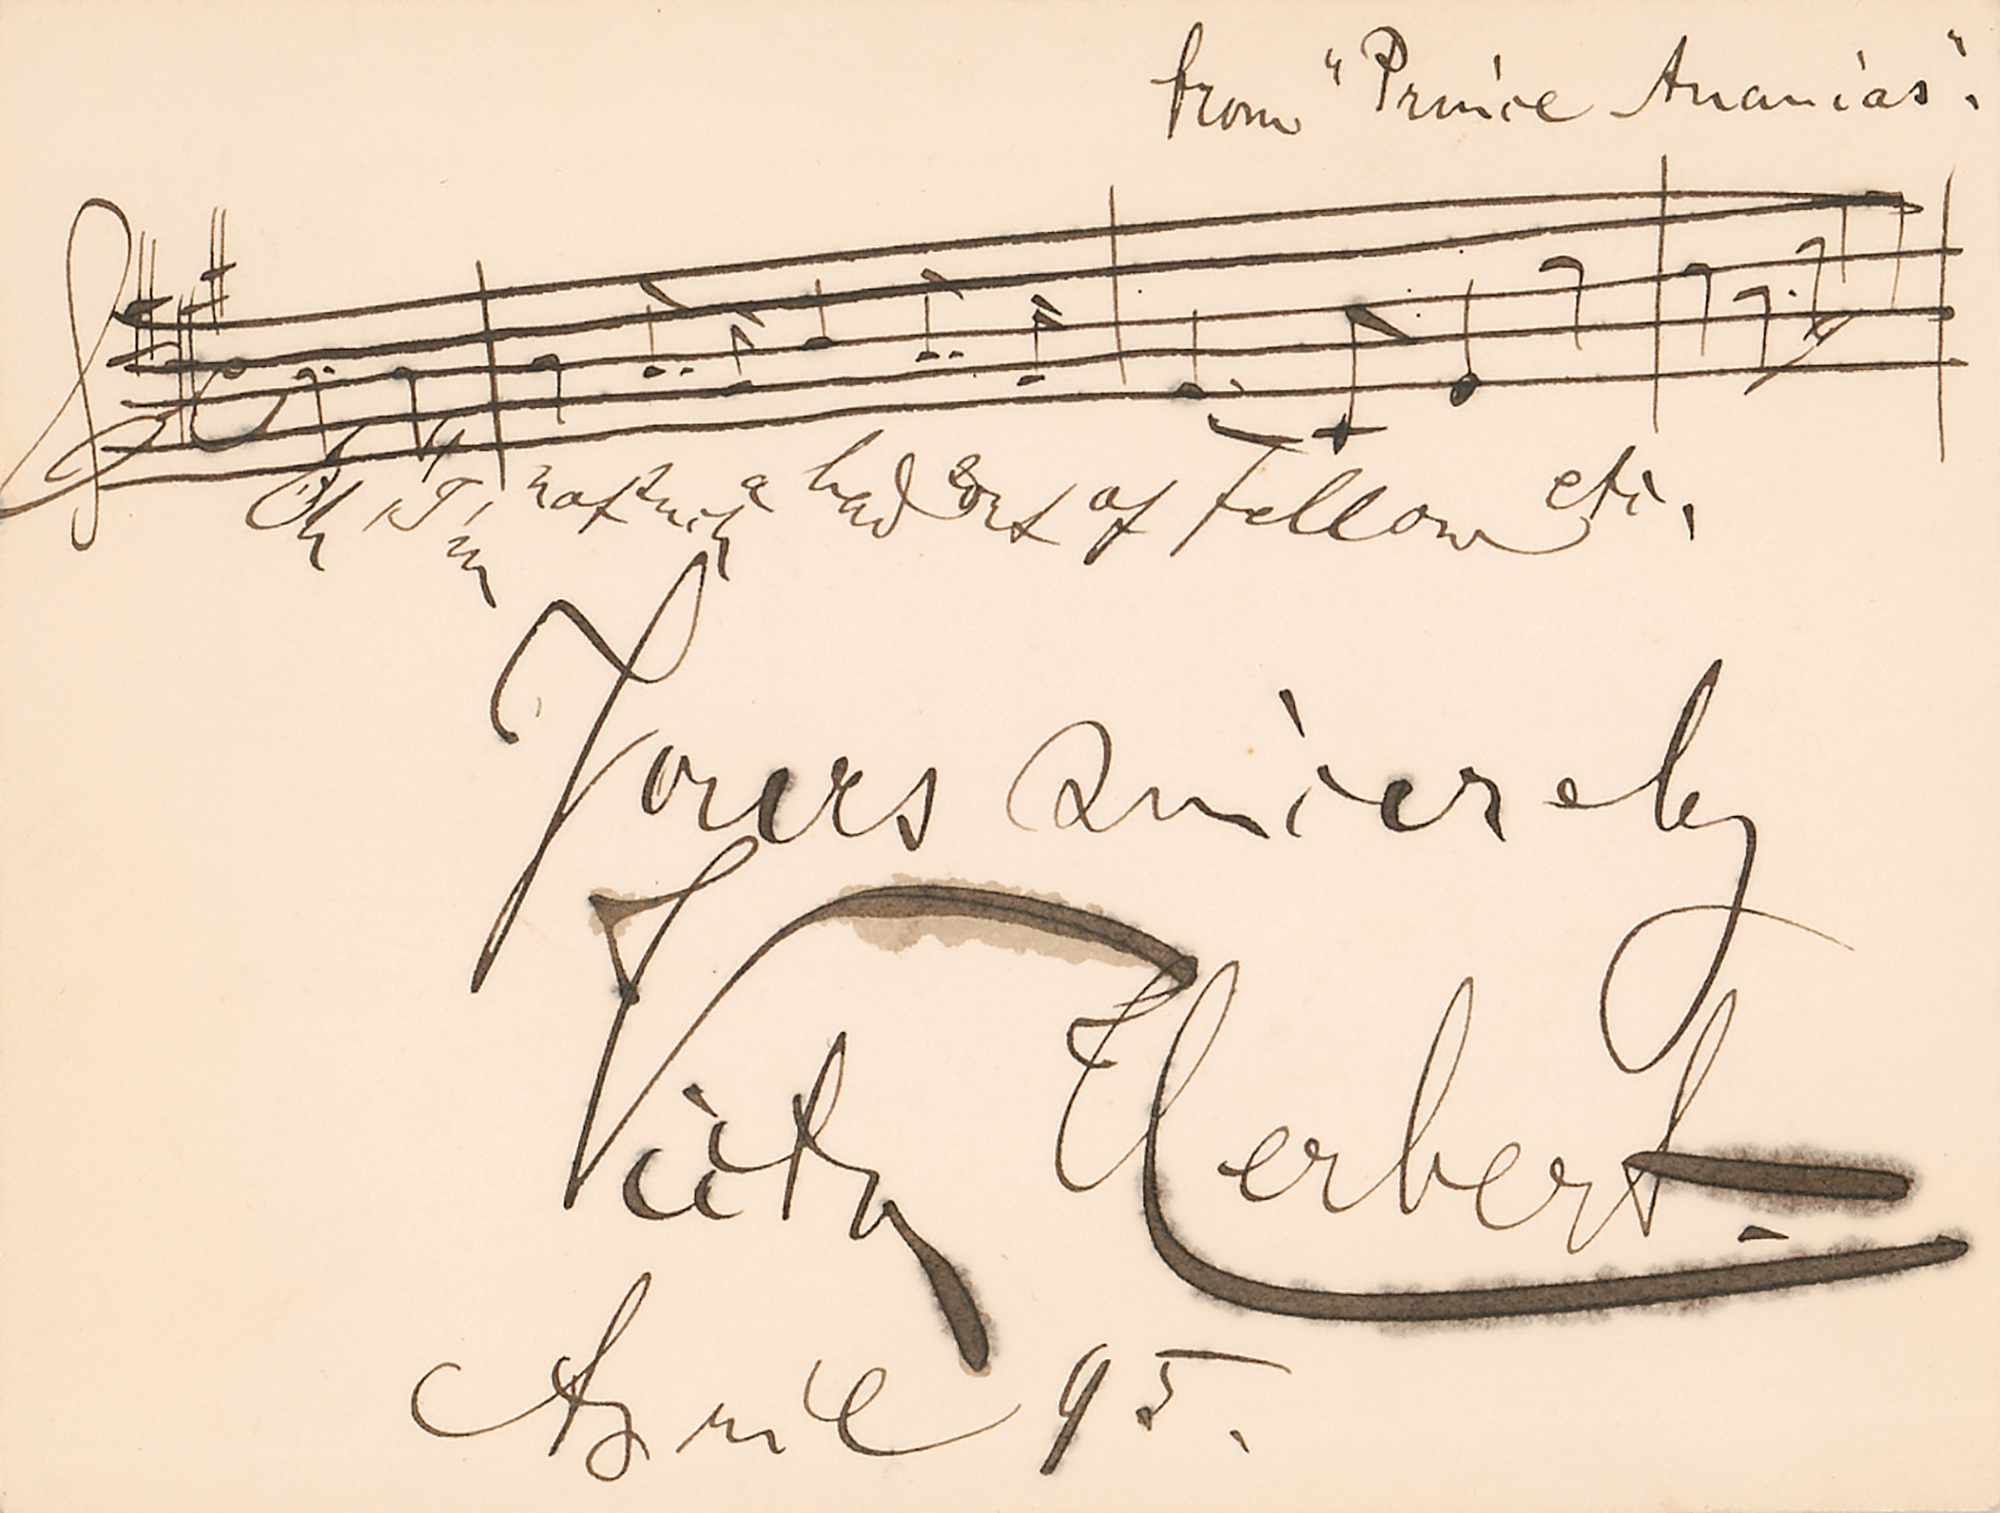 from "Prince Ananias".
Oh I'm naught a bad sort of fellow etc.
Yours sincerely
Victor Herbert.
April 95.